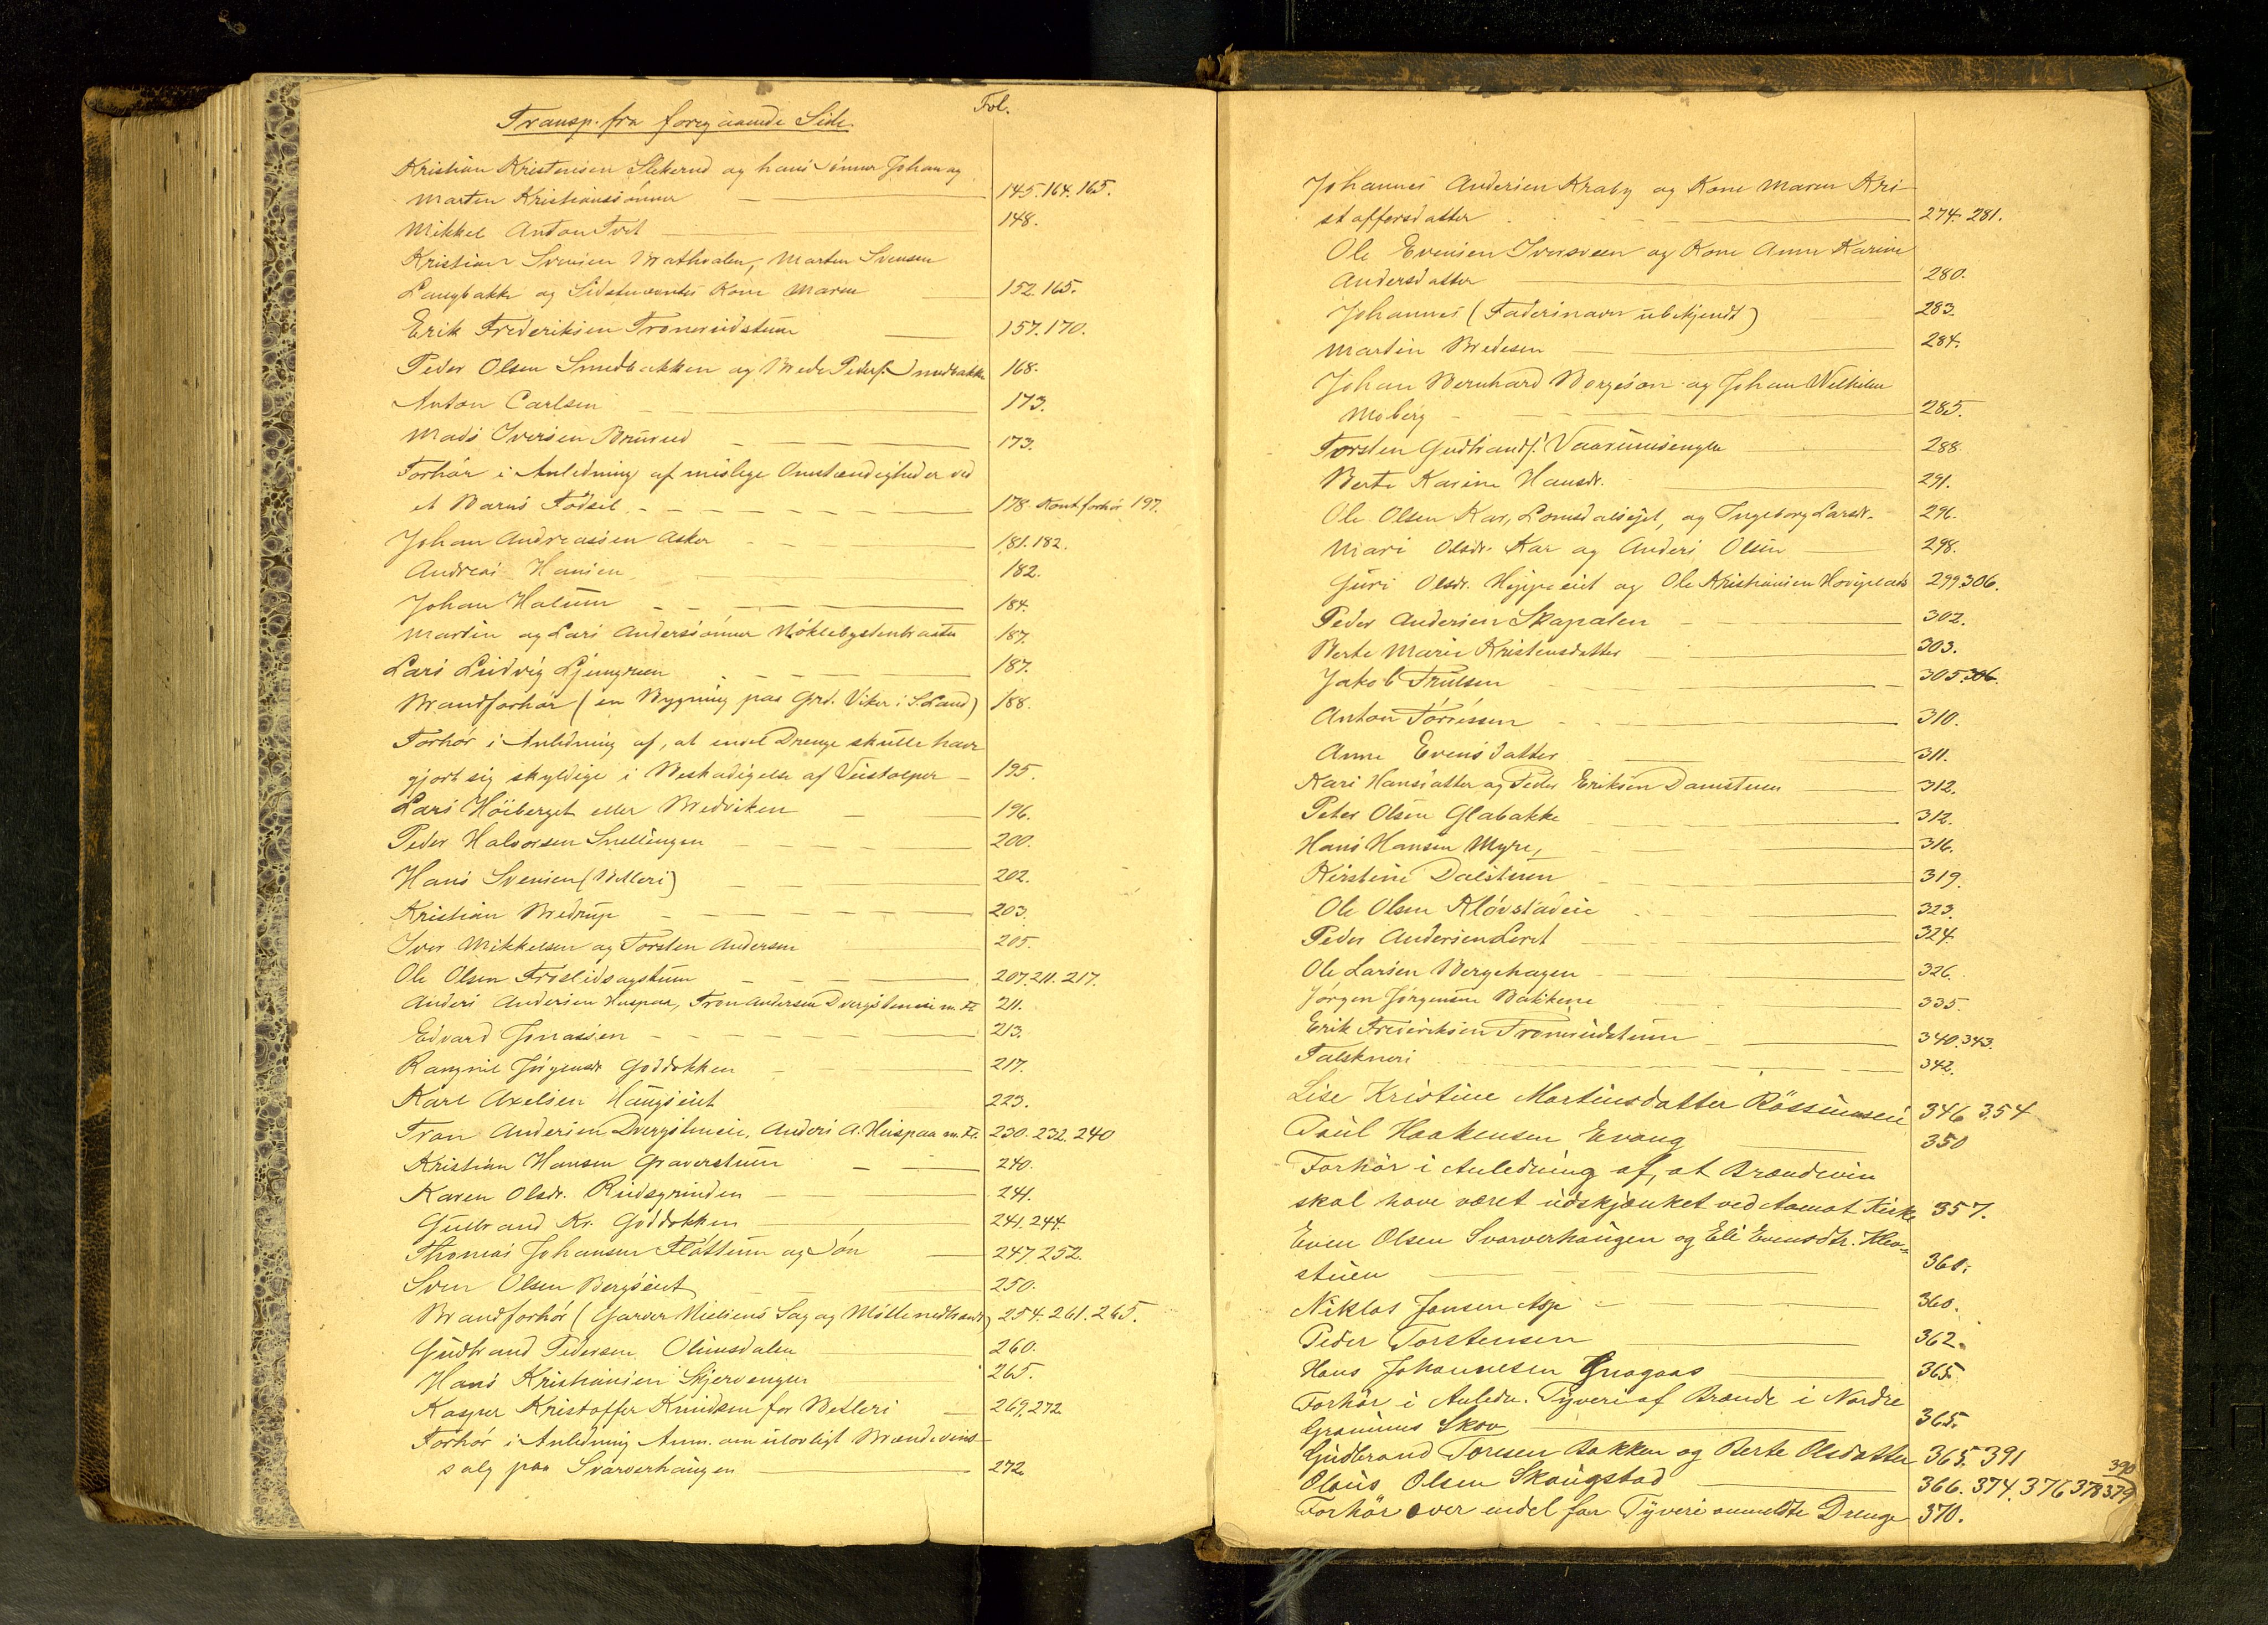 Transp. fra foregaaende Side Fol.
Kristian Kristensen Slekerud og hans Sönner Johan og
Marten Kristianssönner 145. 164. 165.
Mikkel Anton Tvet 148.
Kristian Svensen Brathvalen, Marten Svensen
Langbakke og Sidstnævntes Kone Maren 152. 165.
Erik Frederiksen Tronerudstuen 157. 170.
Peder Olsen Smedbakken og Brede Peders. Smedbakke 168.
Anton Carlsen 173.
Mads Iversen Brurud 173.
Forhör i Anledning af mislige Omstændigheder ved
et Barns Födsel 178. Kont. forhör 197.
Johan Andreassen Asker 181. 182.
Andreas Hansen 182.
Johan Halum 184.
Martin og Lars Anderssönner Nöklebystenbraaten 187.
Lars Ludvig Ljunggreen 187.
Brandforhör (en Bygning paa Grd. Viker i S. Land) 188.
Forhör i Anledning af, at endel Drenge skulle have
gjort sig skyldige i Beskadigelse af Veistolper 195.
Lars Höiberget eller Bredviken 196.
Peder Halvorsen Snellingen 200.
Hans Svensen (Betleri) 202.
Kristian Bredrup 203.
Iver Mikkelsen og Torsten Andersen 205.
Ole Olsen Fröslidsagstuen 207. 211. 217.
Anders Andersen Huspaa, Tron Andersen Dvergsteneie m. Fl. 211.
Edvard Jonassen 213.
Rangnil Jörgensdr. Goddokken 217.
Karl Axelsen Haugseiet 223.
Tron Andersen Dvergsteneie, Anders A. Huspaa m. Fl. 230. 232. 240
Kristian Hansen Graverstuen 240.
Karen Olsdr. Rudsgrinden 241.
Gulbrand Kr. Goddokken 241. 244.
Thomas Johansen Flattum og Sön 247. 252.
Sven Olsen Bergseiet 250.
Brandforhör (Garver Nielsens Sag og Mölle nedbrændt) 254. 261. 265.
Gudbrand Pedersen Olumsdalen 260.
Hans Kristiansen Skjervengen 265.
Kasper Kristoffer Knudsen for Betleri 269. 272
Forhör i Anledning Anm. om ulovligt Brændevins-
salg paa Svarverhaugen 272.
Johannes Andersen Kraby og Kone Maren Kri-
stoffersdatter 274. 281.
Ole Evensen Iversveen og Kone Anne Karine
Andersdatter 280.
Johannes (Fadersnavn ubekjendt) 283.
Martin Bredesen 284.
Johan Bernhard Borgeson og Johan Wilhelm
Moberg 285.
Torsten Gudbrands. Vaarumsengen 288.
Berte Karine Hansdr. 291.
Ole Olsen Kar, Lomsdalsejet, og Ingeborg Larsdr. 296.
Mari Olsdr. Kar og Anders Olsen 298.
Guri Olsdr. Hyppeeiet og Ole Kristiansen Hovsplads 299. 306.
Peder Andersen Skapalen 302.
Berte Marie Kristensdatter 303.
Jakob Trulsen 305. 306.
Anton Törrissen 310.
Anne Evensdatter 311.
Kari Hansdatter og Peder Eriksen Damstuen 312.
Peter Olsen Glabakke 312.
Hans Hansen Myre, 316.
Kirstine Dalstuen 319.
Ole Olsen Klövstadeie 323.
Peder Andersen Leret 324.
Ole Larsen Bergehagen 326.
Jörgen Jörgensen Bakkene 335.
Erik Frederiksen Tronerudstuen 340. 343.
Falskneri 342.
Lise Kristine Martinsdatter Rössumseie 346 354
Poul Haakensen Evang 350
Forhör i Anledning af, at Brændevin
skal have været udskjænket ved Aamot Kirke 357.
Even Olsen Svarverhaugen og Eli Evensdtr. Klev-
stuen 360.
Niklas Jansen Asp 360.
Peder Torstensen 362.
Hans Johannesen Gnagaas 365.
Forhör i Anledn. Tyveri af Brænde i Nordre
Granums Skov 365.
Gudbrand Torsen Bakken og Berte Olsdatter 365. 391
Olaus Olsen Skaugstad 366. 374. 376 378 379 390
Forhör over endel for Tyveri anmeldte Drenge 370.